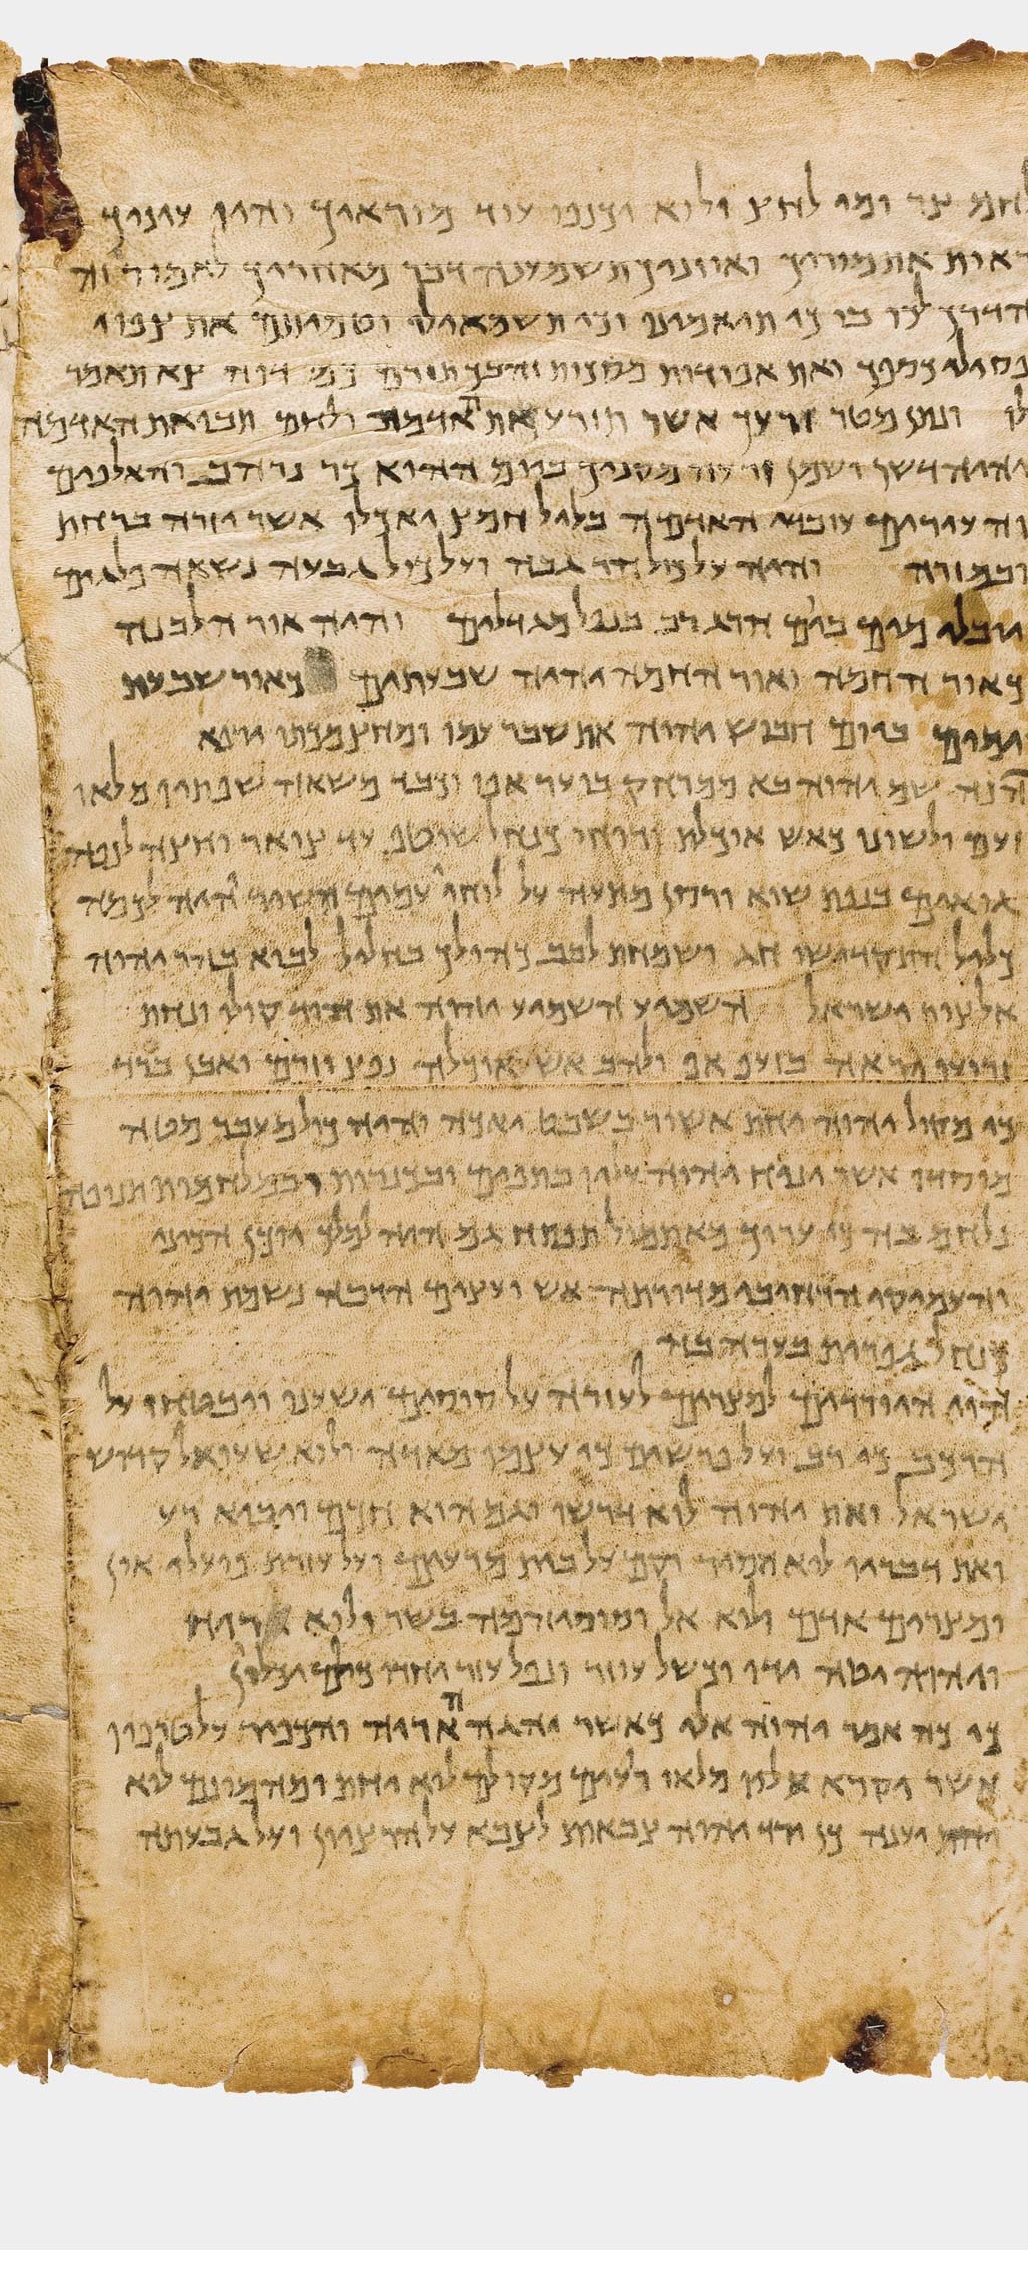 לחם צר ומים לחץ ולוא יכנפו עוד מוראיך והיו עיניך
ראות את מוריך ואוזניך תשמענה דבר מאחריך לאמור זה
הדרך לכו בו כי תיאמינו וכי תשמאילו וטמיתם את צפוי
פסילי כספך ואת אפודת מסכת זהבך תזרם כמי דוה צא תאמר
לו ונתן מטר זרעך אשר תזרע את האדמה ולחם תבואת האדמה
והיה דשן ושמן ורעו מקניך ביום ההוא כר נרחב והאלפים
והעירים עובדי האדמה בליל חמיץ יאכלו אשר יזרה ברחת
ובמזרה והיה על כול הר גבה ועל כול גבעה נשאה פלגים
יובלי מים ביום הרג רב בנפל מגדלים והיה אור הלבנה
כאור החמה ואור החמה יהיה שבעתים כאור שבעת
הימים ביום חבוש יהוה את שבר עמו ומחץ מכתו ירפא
הנה שם יהוה בא ממרחק בוער אפו וכבד משאה שפתיו מלאו
זעם ולשונו כאש אוכלת ורוחו כנחל שוטף עד צואר יחצה לנפה
גואים בנפת שוא ורסן מתעה על לוחיי עמים השיר יהיה לכמה
כליל התקדשו חג ושמחת לבב כהולך בחליל לבוא בהר יהוה
אל צור ישראל השמיע השמיע יהוה את הוד קולו ונחת
זרועו יראה בזעף אף ולהב אש אוכלה נפץ וזרם ואבן ברד
כי מקול יהוה יחת אשור בשבט יכה והיה כול מעבר מטה
מוסדו אשר יניח יהוה עליו בתפים ובכנרות ובמלחמות תנופה
נלחם בה כי ערוך מאתמול תפתח גם היה למלך יוכן
והעמיקי הרחיבי מדורתה אש ועצים הרבה נשמת יהוה
כנחל גפרית בערה בה
הוי היורדים למצרים לעזרה על סוסים ישענו ויבטחו על
הרכב כי רב ועל פרשים כי עצמו מאדה ולוא שעו אל קדוש
ישראל ואת יהוה לוא דרשו וגם הוא חכם ויביא רע
ואת דבריו לוא הסיר וקם על בית מרעים ועל עזרת פועלי און
ומצרים אדם ולוא אל וסוסיהמה בשר ולוא רוח
ויהוה יטה ידו וכשל עוזר ונפל עזר יחדו כולם יכליון
כי כה אמר יהוה אלי כאשר יהגה האריה והכפיר על טרפו
אשר יקרא עליו מלוא רעים מקולם לוא יחת ומהמונם לוא
יענה כן ירד יהוה צבאות לצבא על הר ציון ועל גבעתה